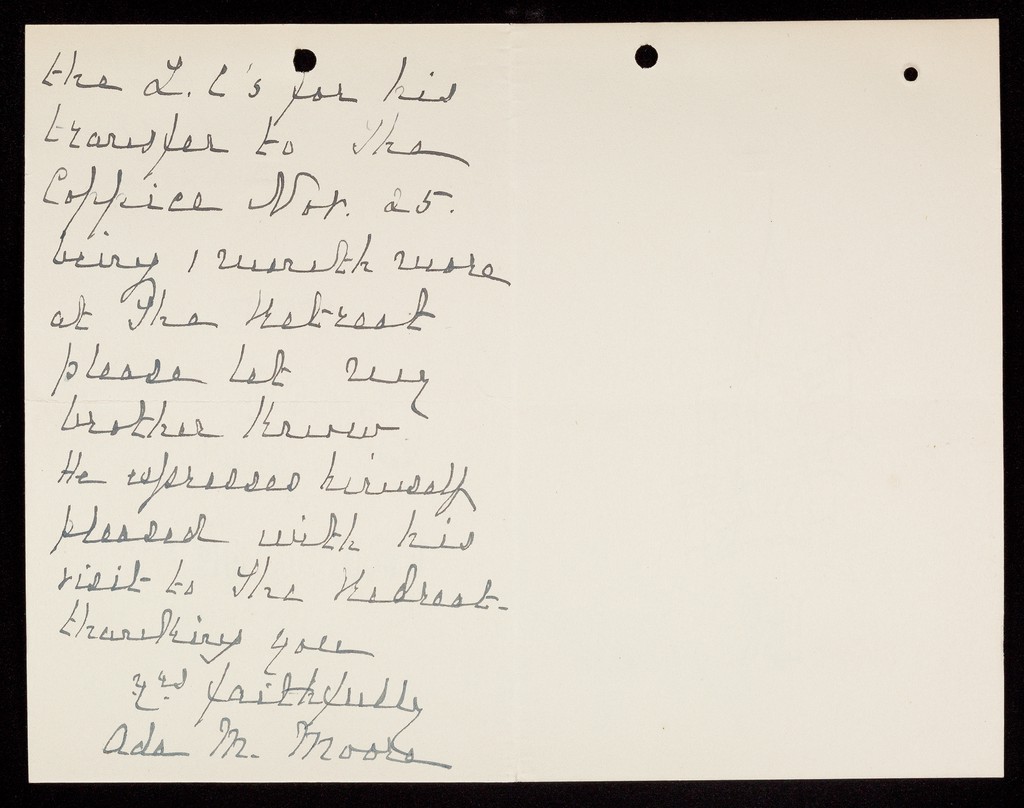 the L.C's for his
transfer to The
Coppice Nov. 25.
being 1 month more
at The Retreat
please let my
brother know
He expresses himself
pleased with his
visit to The Retreat-
thanking you
yrs faithfully
Ada M. Moore